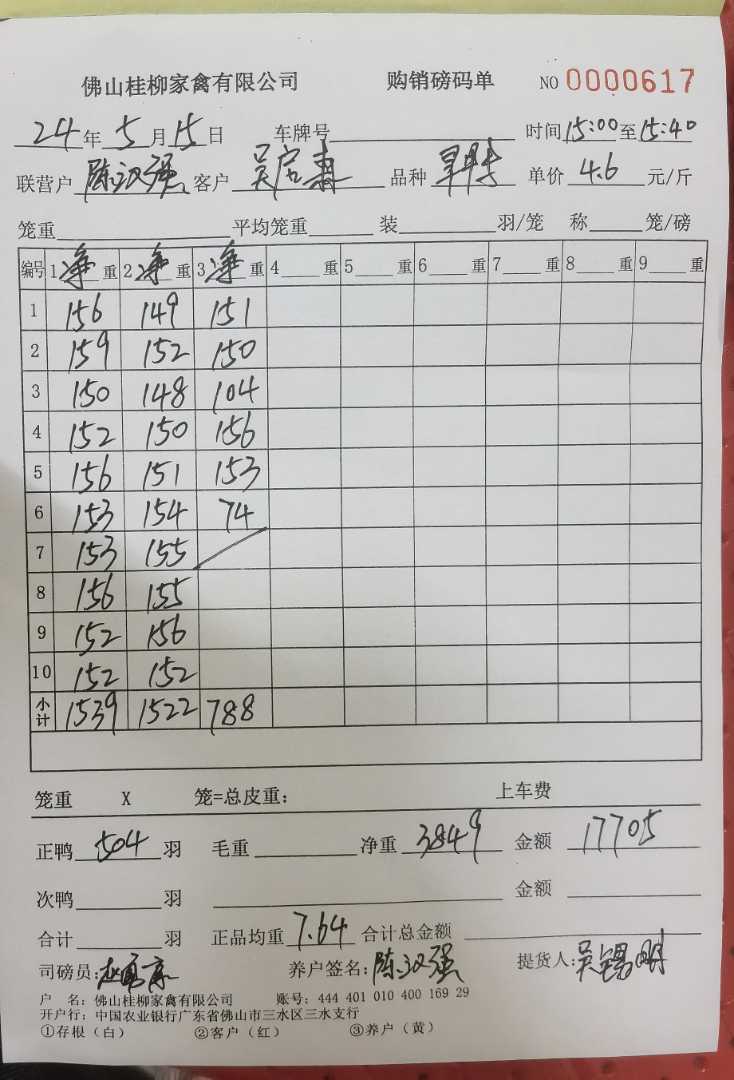 佛山桂柳家禽有限公司 购销磅码单 NO 0000617
24年5月15日 车牌号 时间15:00至15:40
联营户 陈汉强 客户 吴 品种 单价 4.6 元/斤
笼重 平均笼重 装 羽/笼 称 笼/磅
编号 1净重 2净重 3净重 4重 5重 6重 7重 8重 9重
1 156 149 151
2 159 152 150
3 150 148 104
4 152 150 156
5 156 151 153
6 153 154 74
7 153 155
8 156 155
9 152 156
10 152 152
小计 1539 1522 788
笼重 X 笼=总皮重: 上车费
正鸭 504 羽 毛重 净重 3849 金额 17705
次鸭 羽 金额
合计 羽 正品均重 7.64 合计总金额
司磅员: 养户签名: 陈汉强 提货人: 吴锡明
户 名: 佛山桂柳家禽有限公司 账号: 444 401 010 400 169 29
开户行: 中国农业银行广东省佛山市三水区三水支行
①存根(白) ②客户(红) ③养户(黄)